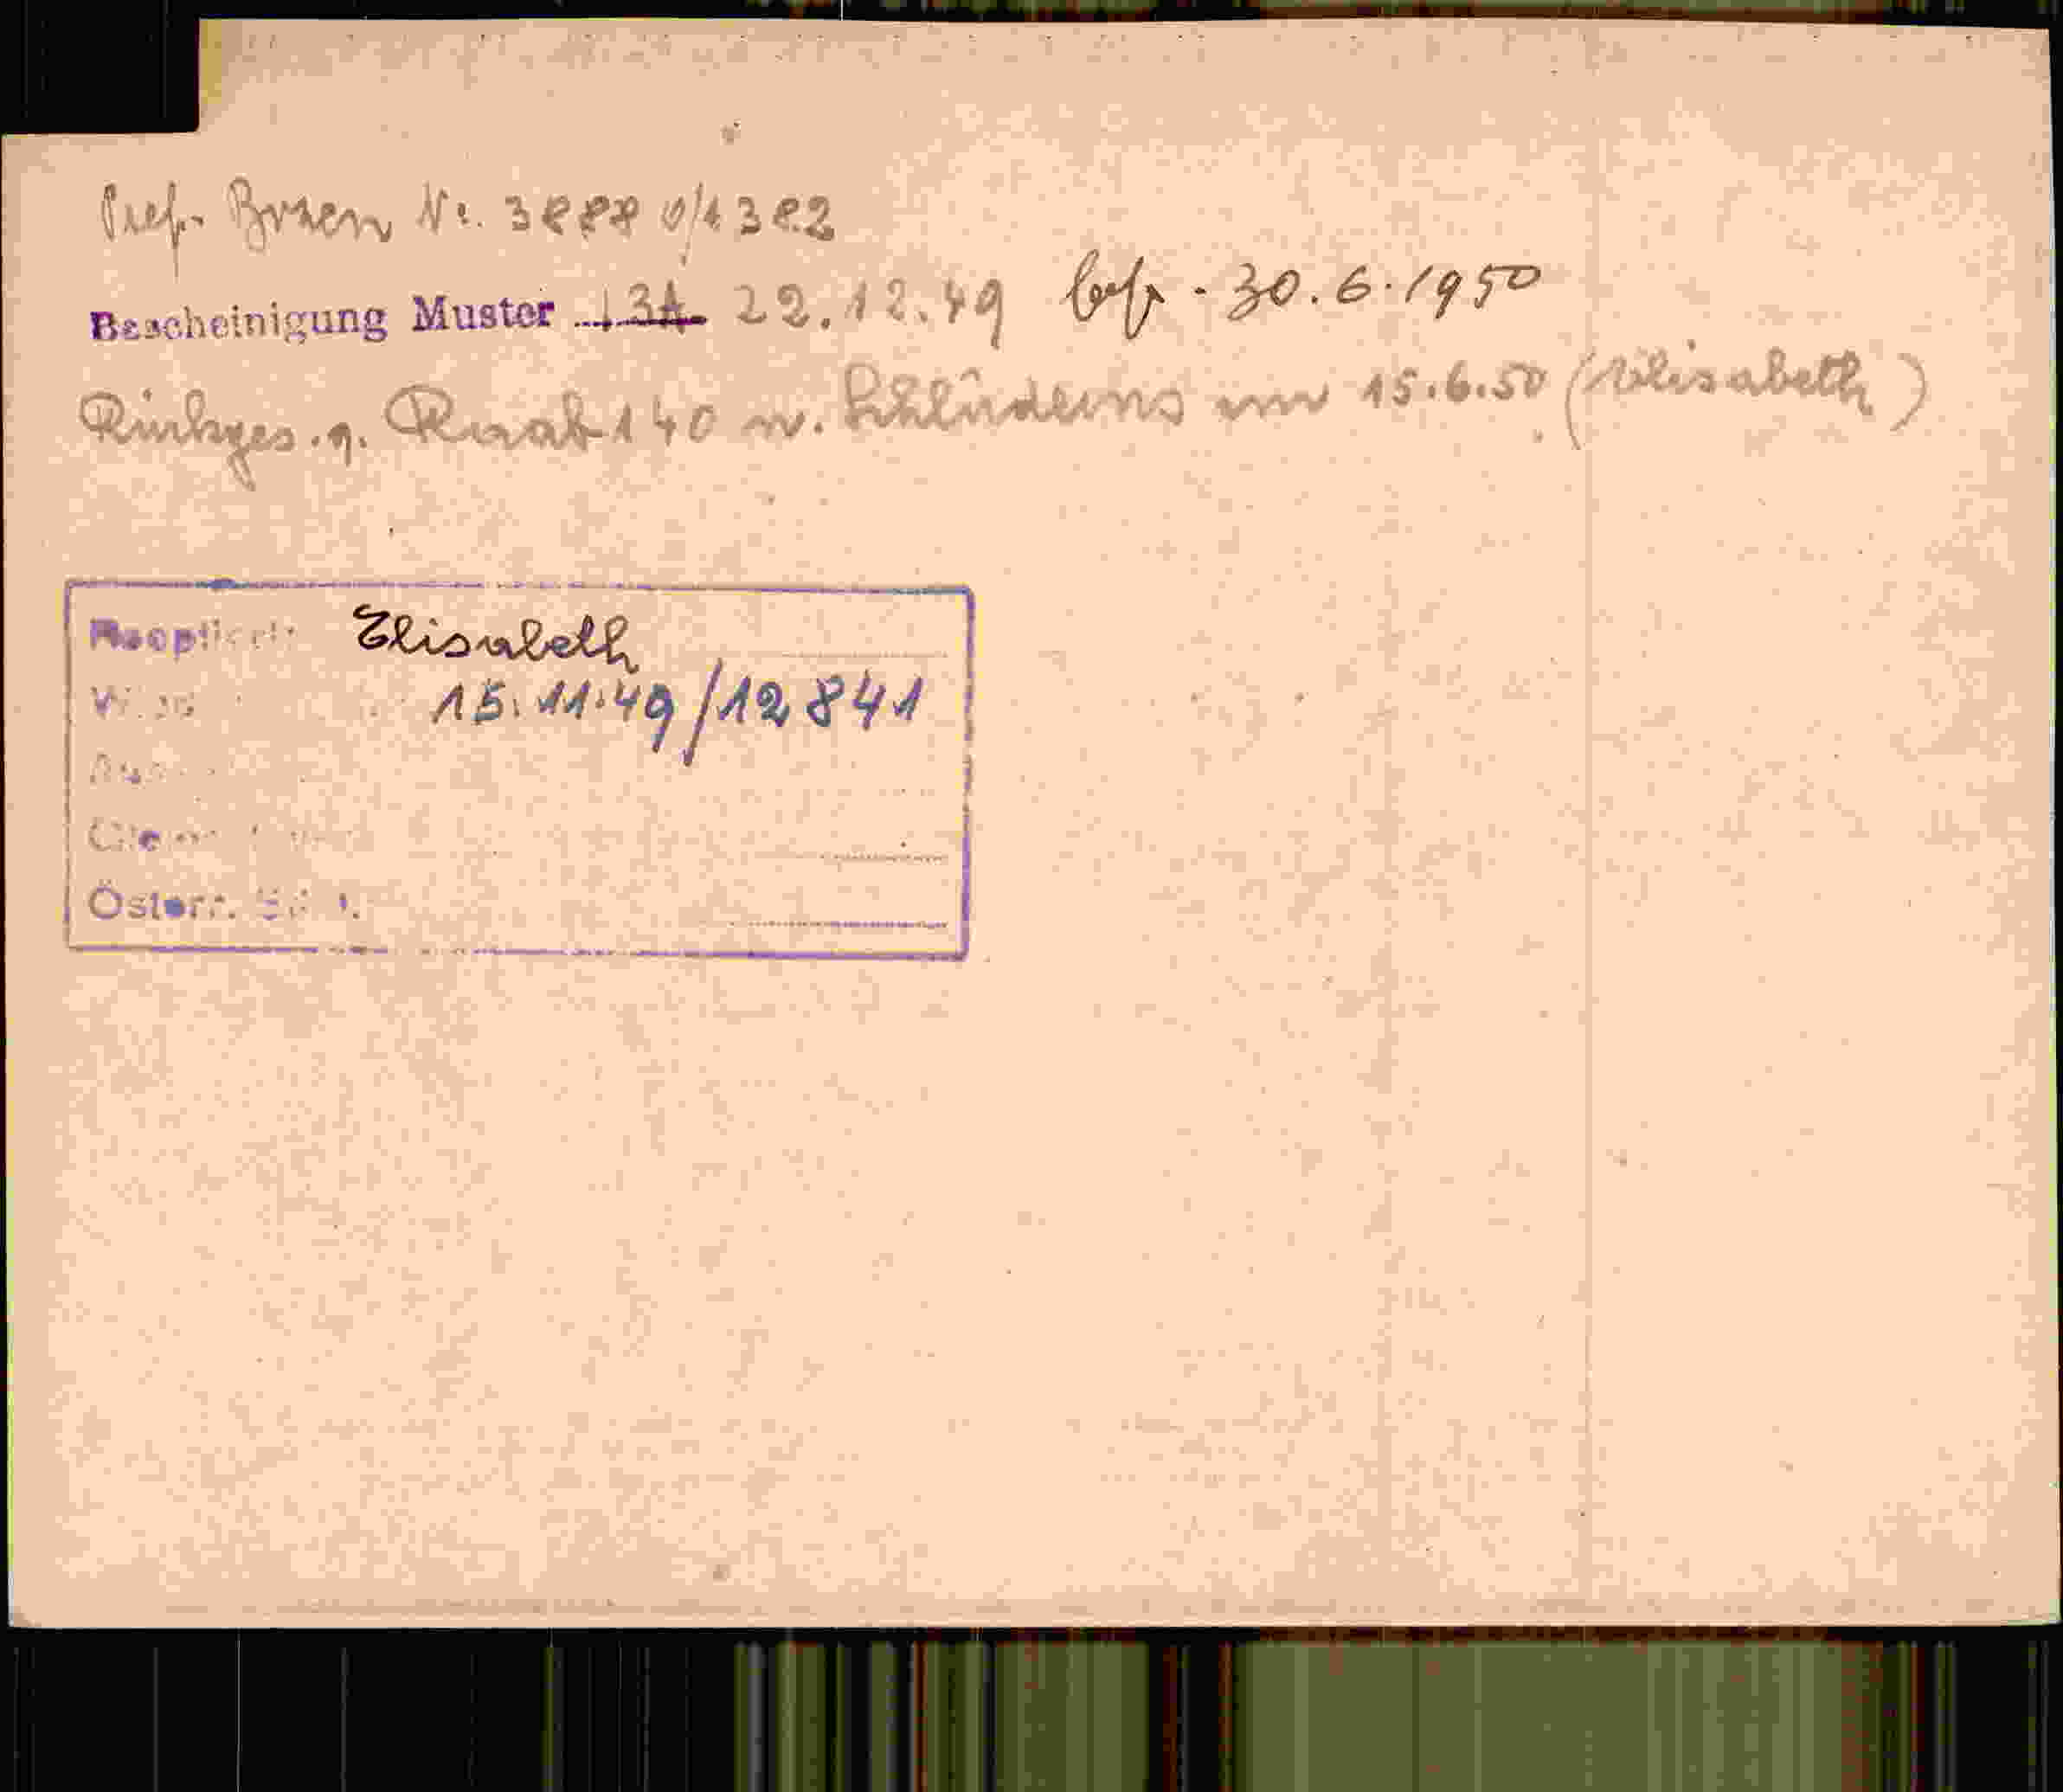 Präf. Bozen Nr. 3888 v/1382
Bescheinigung Muster 13A 22.12.49 bef. 30.6.1950
Rückges. g. Raab 140 n. Schluderns am 15.6.50 (Elisabeth)
Elisabeth
15.11.49/12841
Österr.